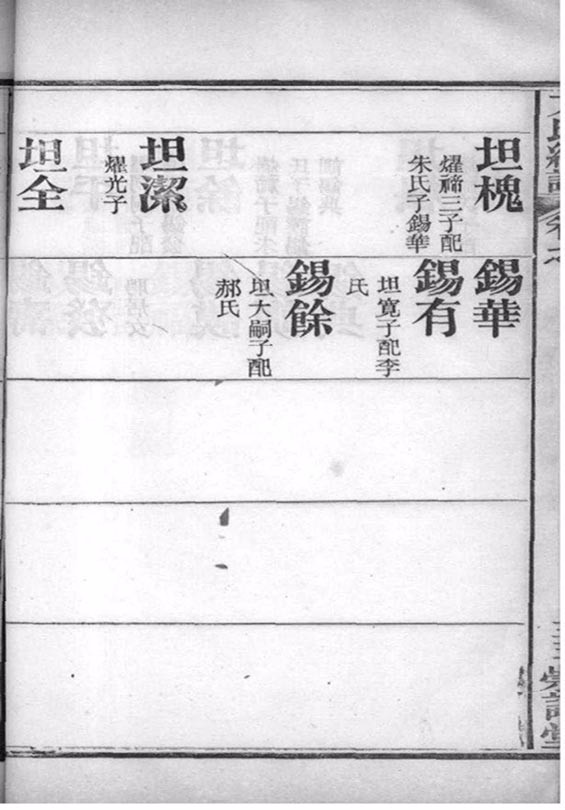 坦槐
燿禘三子配
朱氏子錫華
坦潔
燿光子
坦全
錫華
錫有
坦寬子配李
氏
錫餘
坦大嗣子配
郝氏